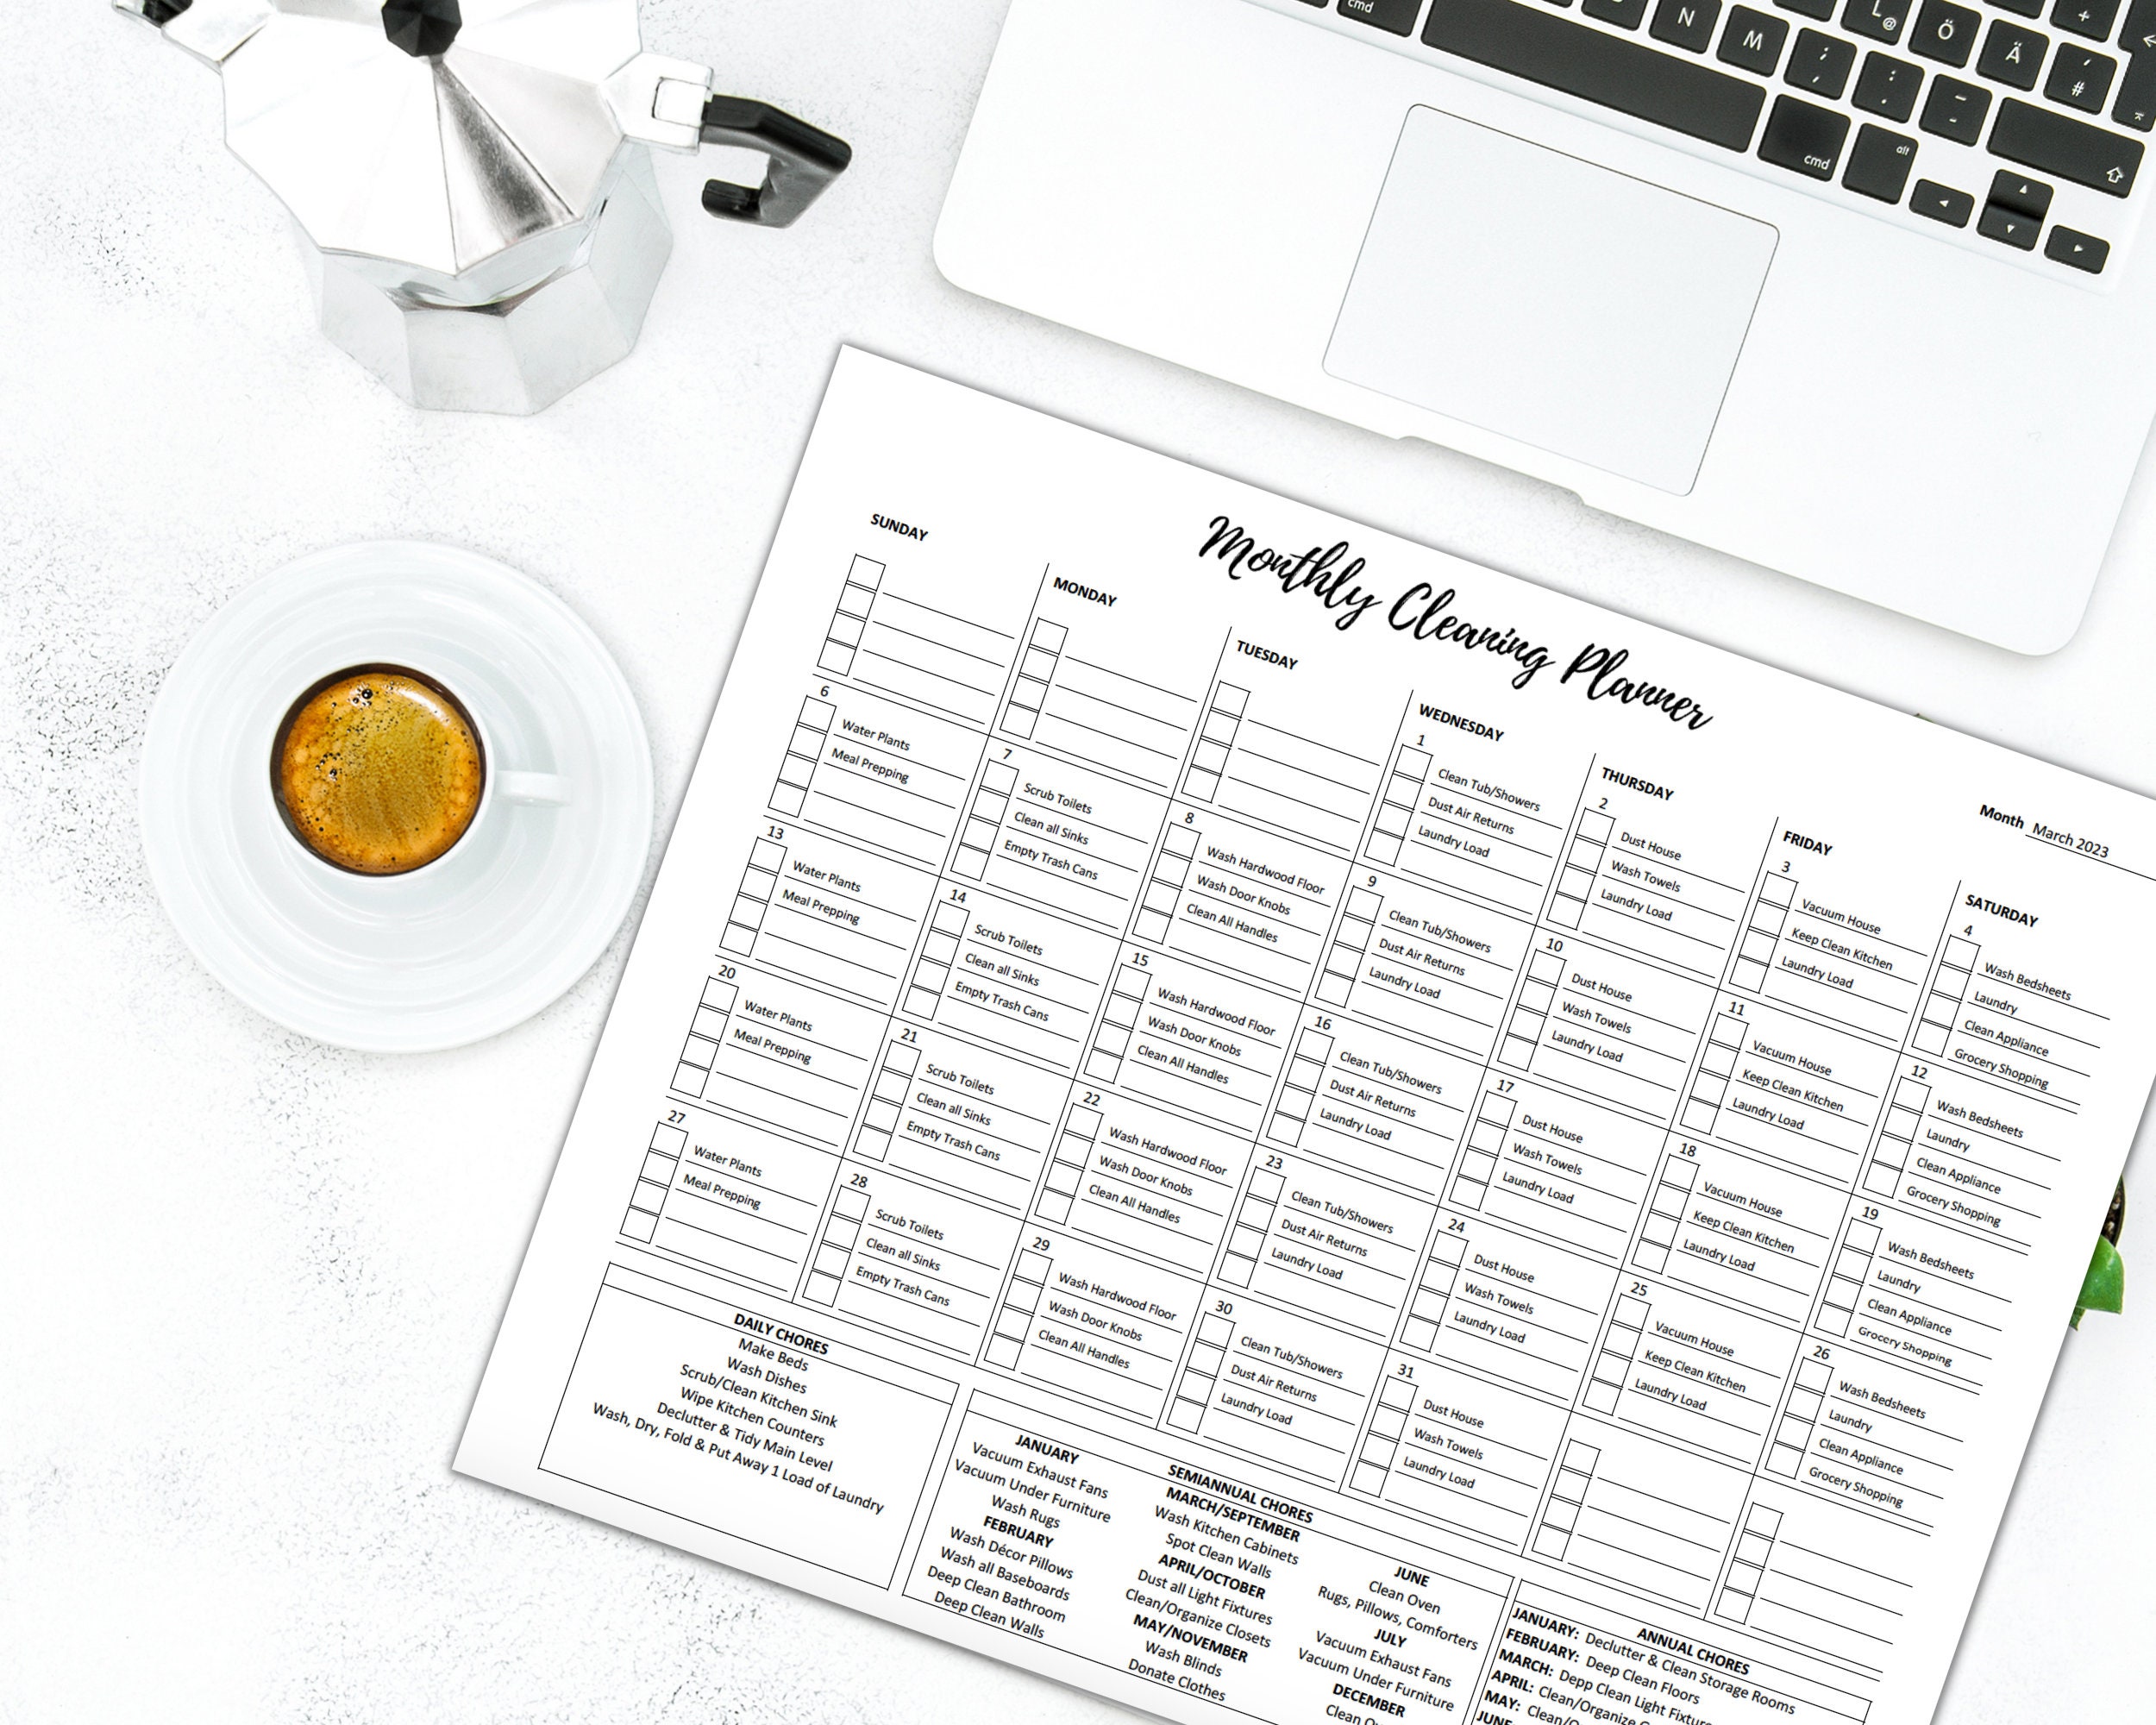 cmd
N
M
;
,
:
.
–
-
L
@
Ö
Ä
'
#
+
cmd
alt
Monthly Cleaning Planner
Month March 2023
SUNDAY
MONDAY
TUESDAY
WEDNESDAY
THURSDAY
FRIDAY
SATURDAY
1
Clean Tub/Showers
Dust Air Returns
Laundry Load
2
Dust House
Wash Towels
Laundry Load
3
Vacuum House
Keep Clean Kitchen
Laundry Load
4
Wash Bedsheets
Laundry
Clean Appliance
Grocery Shopping
6
Water Plants
Meal Prepping
7
Scrub Toilets
Clean all Sinks
Empty Trash Cans
8
Wash Hardwood Floor
Wash Door Knobs
Clean All Handles
9
Clean Tub/Showers
Dust Air Returns
Laundry Load
10
Dust House
Wash Towels
Laundry Load
11
Vacuum House
Keep Clean Kitchen
Laundry Load
12
Wash Bedsheets
Laundry
Clean Appliance
Grocery Shopping
13
Water Plants
Meal Prepping
14
Scrub Toilets
Clean all Sinks
Empty Trash Cans
15
Wash Hardwood Floor
Wash Door Knobs
Clean All Handles
16
Clean Tub/Showers
Dust Air Returns
Laundry Load
17
Dust House
Wash Towels
Laundry Load
18
Vacuum House
Keep Clean Kitchen
Laundry Load
19
Wash Bedsheets
Laundry
Clean Appliance
Grocery Shopping
20
Water Plants
Meal Prepping
21
Scrub Toilets
Clean all Sinks
Empty Trash Cans
22
Wash Hardwood Floor
Wash Door Knobs
Clean All Handles
23
Clean Tub/Showers
Dust Air Returns
Laundry Load
24
Dust House
Wash Towels
Laundry Load
25
Vacuum House
Keep Clean Kitchen
Laundry Load
26
Wash Bedsheets
Laundry
Clean Appliance
Grocery Shopping
27
Water Plants
Meal Prepping
28
Scrub Toilets
Clean all Sinks
Empty Trash Cans
29
Wash Hardwood Floor
Wash Door Knobs
Clean All Handles
30
Clean Tub/Showers
Dust Air Returns
Laundry Load
31
Dust House
Wash Towels
Laundry Load
DAILY CHORES
Make Beds
Wash Dishes
Scrub/Clean Kitchen Sink
Wipe Kitchen Counters
Declutter & Tidy Main Level
Wash, Dry, Fold & Put Away 1 Load of Laundry
SEMIANNUAL CHORES
JANUARY
Vacuum Exhaust Fans
Vacuum Under Furniture
Wash Rugs
FEBRUARY
Wash Décor Pillows
Wash all Baseboards
Deep Clean Bathroom
Deep Clean Walls
MARCH/SEPTEMBER
Wash Kitchen Cabinets
Spot Clean Walls
APRIL/OCTOBER
Dust all Light Fixtures
Clean/Organize Closets
MAY/NOVEMBER
Wash Blinds
Donate Clothes
JUNE
Clean Oven
Rugs, Pillows, Comforters
JULY
Vacuum Exhaust Fans
Vacuum Under Furniture
DECEMBER
Clean
ANNUAL CHORES
JANUARY: Declutter & Clean Storage Rooms
FEBRUARY: Deep Clean Floors
MARCH: Depp Clean Light
APRIL: Clean/Organize
MAY:
JUNE